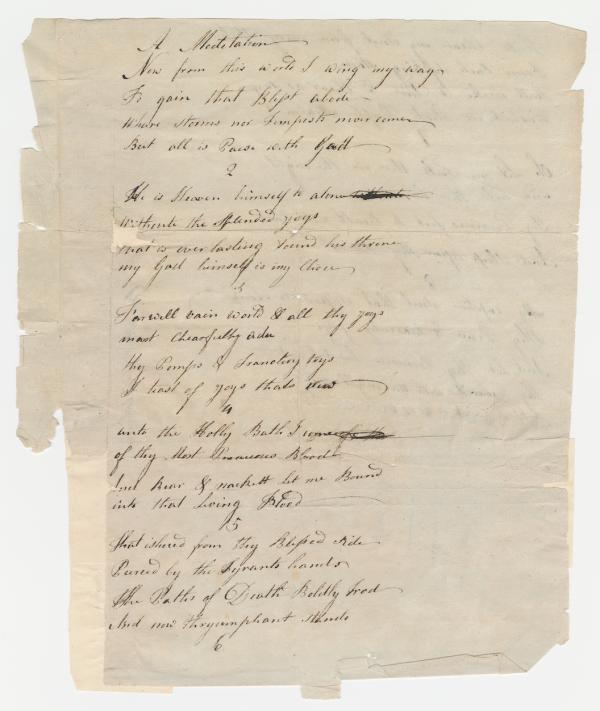 A Medetation
Now from this world I wing my way
To gain that Blest abode
Whare storms nor Tempests never comes
But all is Pease with God
2
He is Heaven himself to alone
Withoute the Splended joys
that is everlasting round his throne
my God himself is my Choice
3
Farwell vain world & all thy joys
most Chearfully adu
thy Pomps & Trancetory toys
I tast of joys thats new
4
unto the Holly Bath I
of thy Most Blood
& nackett let me Bound
into that living Blood
5
that ishued from thy Blessed side
Peirced by the Tyrants hands
The Paths of Death Boldly trod
And now thryoumphant stands
6